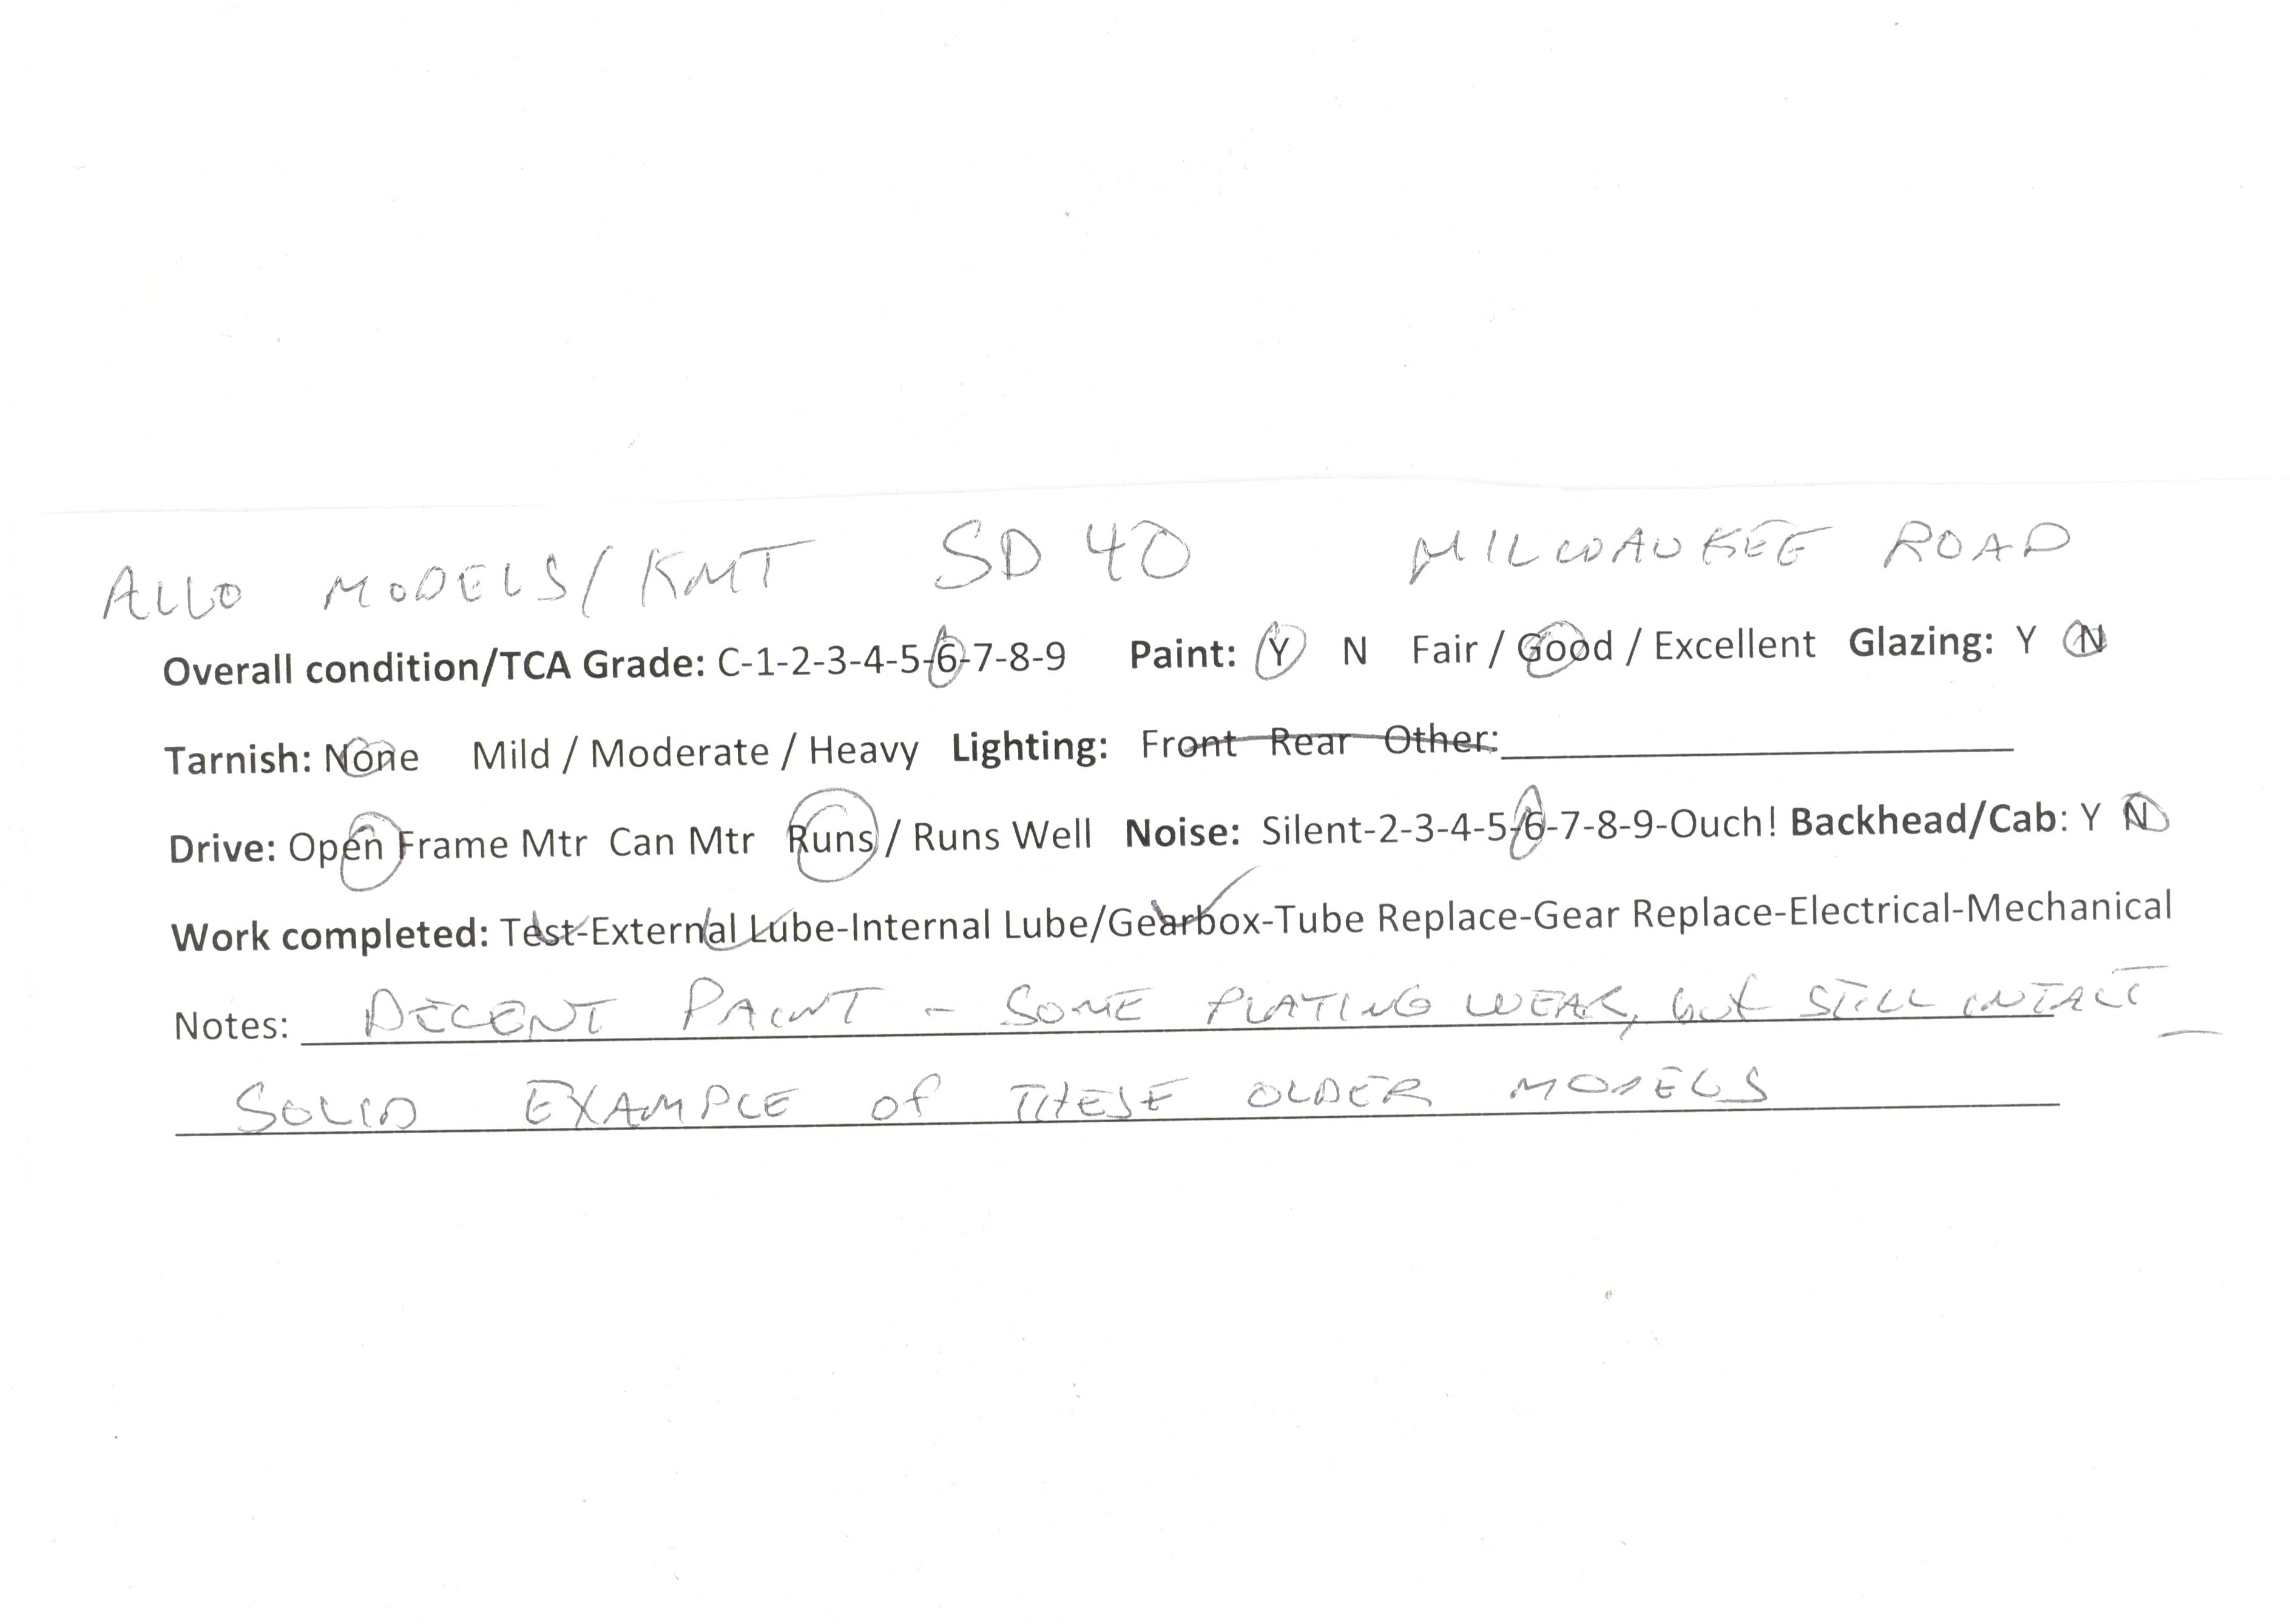 ALCO MODELS/KMT SD 40 MILWAUKEE ROAD
Overall condition/TCA Grade: C-1-2-3-4-5-6-7-8-9 Paint: Y N Fair / Good / Excellent Glazing: Y N
Tarnish: None Mild / Moderate / Heavy Lighting: Front Rear Other:
Drive: Open Frame Mtr Can Mtr Runs / Runs Well Noise: Silent-2-3-4-5-6-7-8-9-Ouch! Backhead/Cab: Y N
Work completed: Test-External Lube-Internal Lube/Gearbox-Tube Replace-Gear Replace-Electrical-Mechanical
Notes: DECENT PAINT - SOME PLATING WEAK, but STILL INTACT -
SOLID EXAMPLE of THESE OLDER MODELS